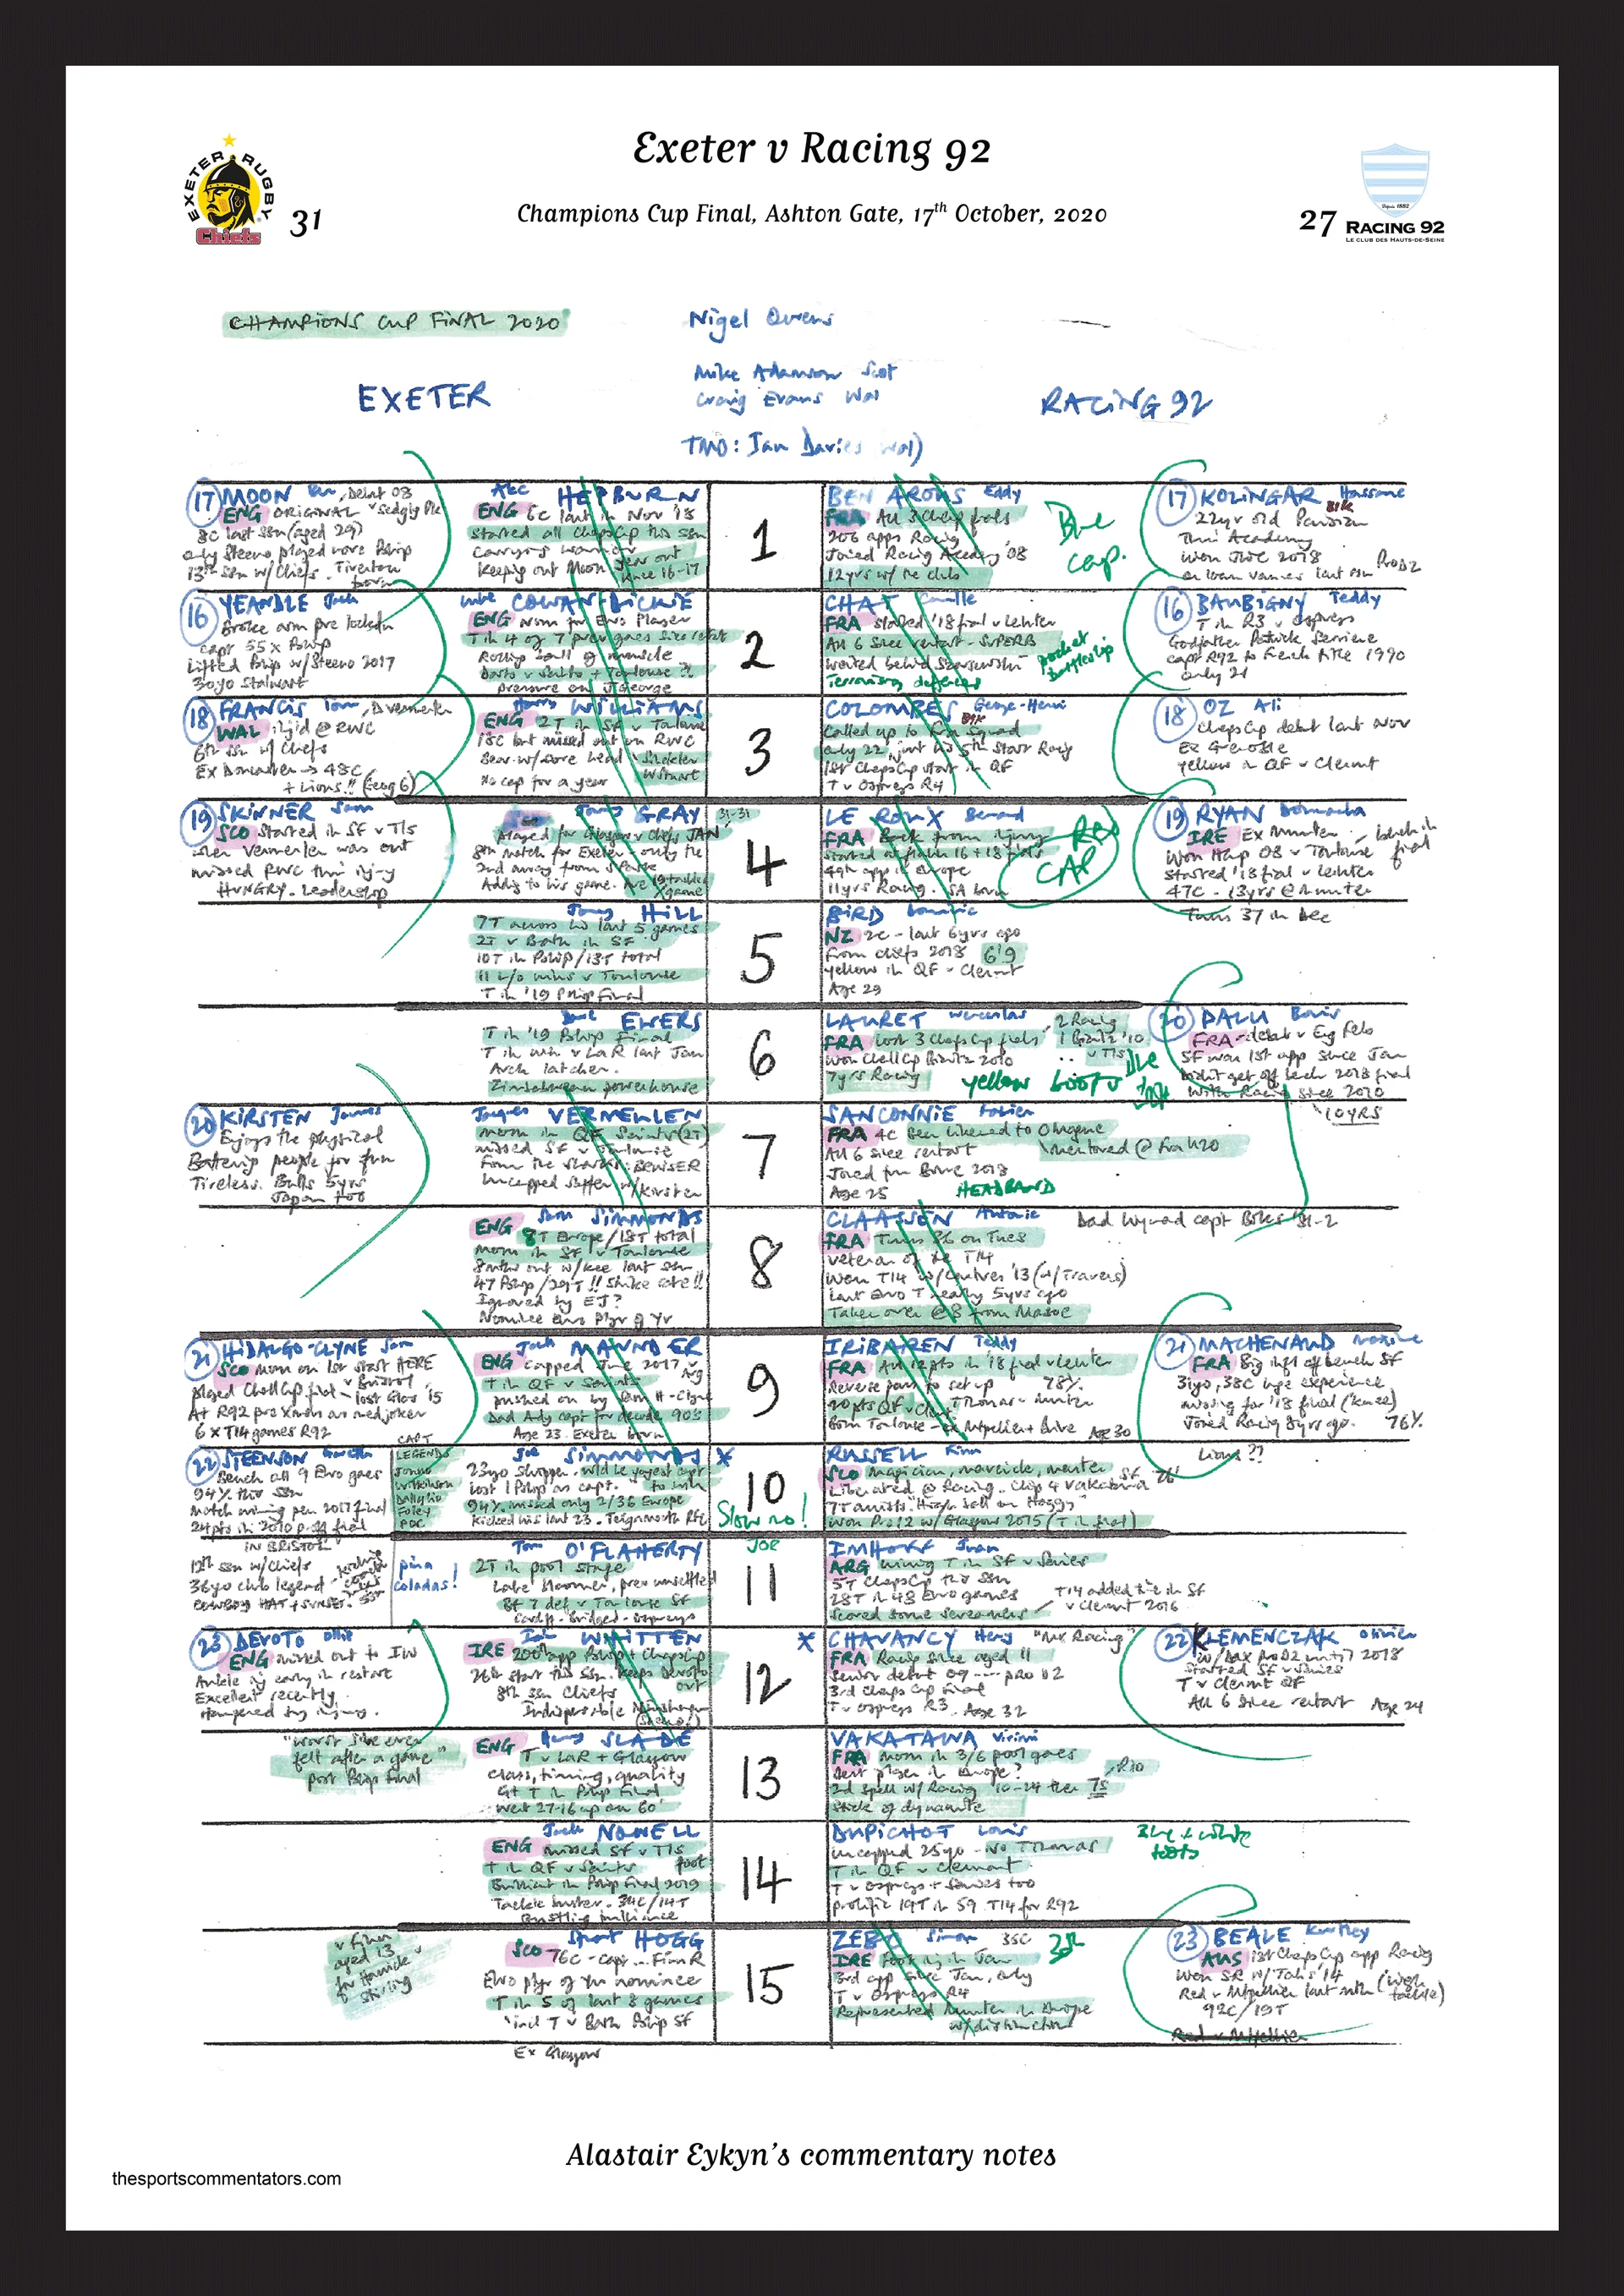 Exeter v Racing 92
EXETER RUGBY
Chiefs
31
Champions Cup Final, Ashton Gate, 17th October, 2020
27
Depuis 1882
RACING 92
LE CLUB DES HAUTS-DE-SEINE
CHAMPIONS CUP FINAL 2020
Nigel Owens
Mike Adamson Scot
Craig Evans Wal
EXETER
RACING 92
TMO: Ian Davies Wal)
17 MOON Ben, Debut 08
ENG ORIGINAL
8C last ssn (aged 29)
only Steeno played more Pship
13th ssn w/ Chiefs. Tiverton
born
Alec HEPBURN
ENG 6C last in Nov '18
started all ChapsCup this ssn
Keeping out Moon
year out
knee 16-17
1
BEN AROUS Eddy
FRA All 3 Chap finals
206 apps Racing
Joined Racing Academy '08
12yrs w/ the club
Blue
cap.
17 KOLINGAR Hassane
22yr old Parisian
Thru Academy
won JWC 2018
on loan Vannes last ssn ProD2
16 YEANDLE Jack
Broke arm pre lockdn
capt 55 x Pship
Lifted Pship w/ Steeno 2017
30yo Stalwart
Luke COWAN-DICKIE
ENG Nom for Euro Player
T in 4 of 7 prev games since restart
Rolling ball of muscle
pressure on J George
2
CHAT Camille
FRA started '18 final v Leinster
All 6 since restart - SUPERB
Terrorising defences
pocket
battleship
16 BAUBIGNY Teddy
T in R3 v Ospreys
Godfather Patrick Serriere
capt R92 to French title 1990
only 21
18 FRANCIS Tom, D Vermeulen
WAL inj'd @ RWC
6th ssn w/ Chiefs
Ex Doncaster → 48C
+ Lions!! (Eeng 6)
Harry WILLIAMS
ENG 2T in SF v Toulouse
18C but missed out on RWC
Bear w/ sore head
No cap for a year
3
COLOMBES George-Henri
Called up to Fra Squad
only 22, just his 5th start Racing
1st ChapsCup start in QF
T v Ospreys R4
18 OZ Ali
ChapsCup debut last Nov
Ex Grenoble
yellow in QF v Clermt
19 SKINNER Sam
SCO started in SF v Tls
when Vermeulen was out
missed RWC thru inj-y
HUNGRY. Leadership
Jonny GRAY
Played for Glasgow v Chiefs JAN
8th match for Exeter - only the
Adding to his game.
31-31
4
LE ROUX Bernard
FRA Back from injury
started at flank 16 + 18 finals
49th app in Europe
11yrs Racing. SA born
RED
CAP
19 RYAN Donnacha
IRE Ex Munster
Won HCup 08 v Toulouse
started '18 final v Leinster
47C - 13yrs @ Munster
Turns 37 in Dec
Jonny HILL
7T across his last 5 games
2T v Bath in SF
10T in Pship/13T total
11 l/o wins v Toulouse
T in '19 Pship Final
5
BIRD Dominic
NZ 2C - last 6yrs ago
From Chiefs 2018 6'9
yellow in QF - Clermt
Age 29
Dave EWERS
T in '19 Pship Final
T in win v LaR last Jan
Arch latcher.
Zimbabwean powerhouse
6
LAURET Wenceslas
FRA Lost 3 ChapsCup finals
2 Racing
1 Biarritz '10
v Tls
won ChallCup Biarritz 2010
7yrs Racing
yellow boots
blue
20 PALU Boris
FRA - debut v Eng Feb
SF won 1st app since Jan
Didn't get off bench 2018 final
With Racing since 2010
10YRS
20 KIRSTEN Jannes
Enjoys the physical
Battering people for fun
Tireless. Bulls 5yrs
Japan too
Jacques VERMEULEN
mom in QF Saints (2T)
missed SF v Toulouse
From the Sharks: BRUISER
Uncapped Saffer w/ Kirsten
7
SANCONNIE Fabien
FRA 4C Been likened to O Magne
All 6 since restart
mentored @ Fra U20
Joined from Brive 2018
Age 25
HEADBAND
Sam SIMMONDS
ENG 8T Europe/18T total
Mom in SF v Toulouse
8mths out w/ knee last ssn
47 Pship/29T!! Strike rate!!
Ignored by EJ?
Nominee Euro Plyr of Yr
8
CLAASSEN Antonie
Dad Wynand capt Boks '81-2
FRA Turns 36 on Tues
veteran of the T14
Won T14 w/ Castres '13 (w/ Travers)
last Euro T nearly 5yrs ago
Taken over @ 8 from Masoe
21 HIDALGO-CLYNE Sam
SCO mom on 1st start HERE
v Bristol
played ChallCup final - lost Glos '15
At R92 pre Xmas as med joker
6 x T14 games R92
Jack MAUNDER
ENG capped June 2017 v Arg
T in QF v Saints
pushed on by Sam H-Clyne
Dad Andy capt for decade 90s
Age 23. Exeter born
9
IRIBAREN Teddy
FRA All 12pts in '18 final v Leinster
Reverse pass to set up 78%
Born Toulouse - ex Montpellier + Brive Age 30
21 MACHENAUD Maxime
FRA Big inft off bench SF
31yo, 38C huge experience
missing for '18 final (knee)
Joined Racing 8yrs ago. 76%
Lions??
22 STEENSON Gareth
Bench all 9 Euro games
94% this ssn
Match winning pen 2017 final
24pts in 2010 p-off final
IN BRISTOL
12th ssn w/ Chiefs
36yo club legend
COWBOY HAT + SUNSET.
CAPT
LEGENDS
Jonno
Wilkinson
Dallaglio
Foley
POC
pina
coladas!
Joe SIMMONDS *
23yo Skipper. wld be yngest capt
to win
lost 1 Pship as capt.
94%. missed only 2/36 Europe
Kicked his last 23. Teignmouth RFC
10
Slow no!
JOE
RUSSELL Finn
SCO magician, maverick, master
Liberated @ Racing. Chip 4 Vakatawa SF 76'
won Pro12 w/ Glasgow 2015 (T in final)
Tom O'FLAHERTY
2T in pool stage
Late bloomer, prev unsettled
Bt 7 def v Toulouse SF
Cardiff - Bridgend - Ospreys
11
IMHOFF Juan
ARG winning T in SF v Saries
5T ChapsCup this ssn
28T in 48 Euro games
Scored some screamers
T14 added time in SF
v Clermt 2016
23 DEVOTO Ollie
ENG missed out to IW
Ankle inj early in restart
Excellent recently.
Hampered by injury.
Ian WHITTEN
IRE 200th app Pship + ChapsCup
26th start this ssn. Keeps Devoto
out
8th ssn Chiefs
Indispensible
12
* CHAVANCY Henry "Mr Racing"
FRA Racing since aged 11
senior debut 09 --- PRO D2
3rd Chaps Cup Final
T v Ospreys R3. Age 32
22 KLEMENCZAK Olivier
w/ Dax ProD2 until 2018
Started SF v Saries
T v Clermt QF
All 6 since restart Age 24
"worst I've ever
felt after a game"
post Pship final
Henry SLADE
ENG T v LaR + Glasgow
Class, timing, quality
Gt T in Pship Final
went 27-16 up on 60'
13
VAKATAWA Virimi
FRA mom in 3/6 pool games
Best player in Europe?
2nd spell w/ Racing 10-24 then 7s
Stick of dynamite
Jack NOWELL
ENG missed SF v Tls
foot
T in QF v Saints
Brilliant in Pship Final 2019
Tackle buster. 34C/14T
Bustling brilliance
14
DUPICHOT Louis
uncapped 25yo - No Thomas
T in QF v Clermont
T v Ospreys + Saries too
prolific 19T in 59 T14 for R92
Blue + white
boots
v Finn
aged 13
for Hawick
v Stirling
Stuart HOGG
SCO 76C - capt ... Finn R
Euro plyr of yr nominee
T in 5 of last 8 games
incl T v Bath Pship SF
Ex Glasgow
15
ZEBO Simon 35C
IRE Foot inj in Jan
3rd app since Jan, only
T v Ospreys R4
Represented Munster in Europe
w/ distinction
23 BEALE Kurtley
AUS 1st ChapsCup app Racing
won SR w/ Tahs '14
Red v Montpellier last mth (high
tackle)
92C/19T
Red v Mtpellier
Alastair Eykyn's commentary notes
thesportscommentators.com